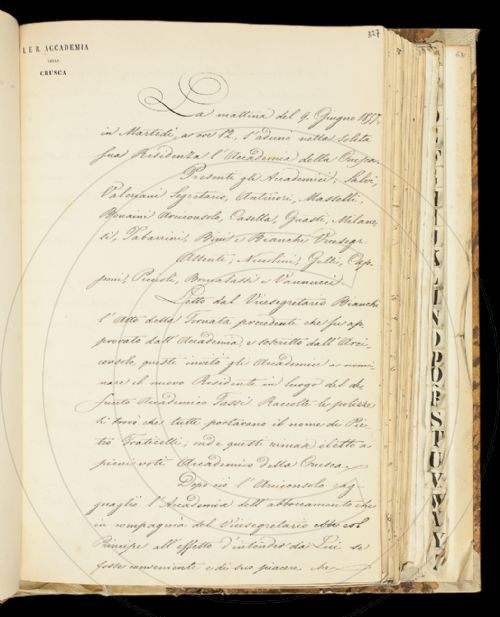 327
I. E R. ACCADEMIA
DELLA
CRUSCA
La mattina del 9. Giugno 1857.
in Martedì, a ore 12, s'adunò nella solita
sua Residenza l'Accademia della Crusca.
Presenti gli Accademici, Salvi,
Valeriani Segretario, Antinori, Masselli,
Bonaini Arciconsolo, Casella, Guasti, Milane-
si, Tabarrini, Bini e Bianchi Vicesegr.
Assenti, Niccolini, Gelli, Cap-
poni, Brugalassi e Vannucci.
Letto dal Vicesegretario Bianchi
l'Atto della Tornata precedente che fu ap-
provato dall'Accademia, e soscritto dall'Arci-
consolo, questi invitò gli Accademici a nomi-
nare il nuovo Residente in luogo del de-
funto Accademico Tassi. Raccolte le polizze
si trovò che tutte portavano il nome di Pie-
tro Fraticelli; onde questi rimase eletto a
pieni voti Accademico della Crusca.
Dopo ciò l'Arciconsolo rag-
guagliò l'Accademia dell'abboccamento che
in compagnia del Vicesegretario col
Principe all'effetto d'intendere da Lui se
fosse conveniente e di suo piacere che
L
N
O
P
Q
R
S
T
U
V
W
X
Y
Z